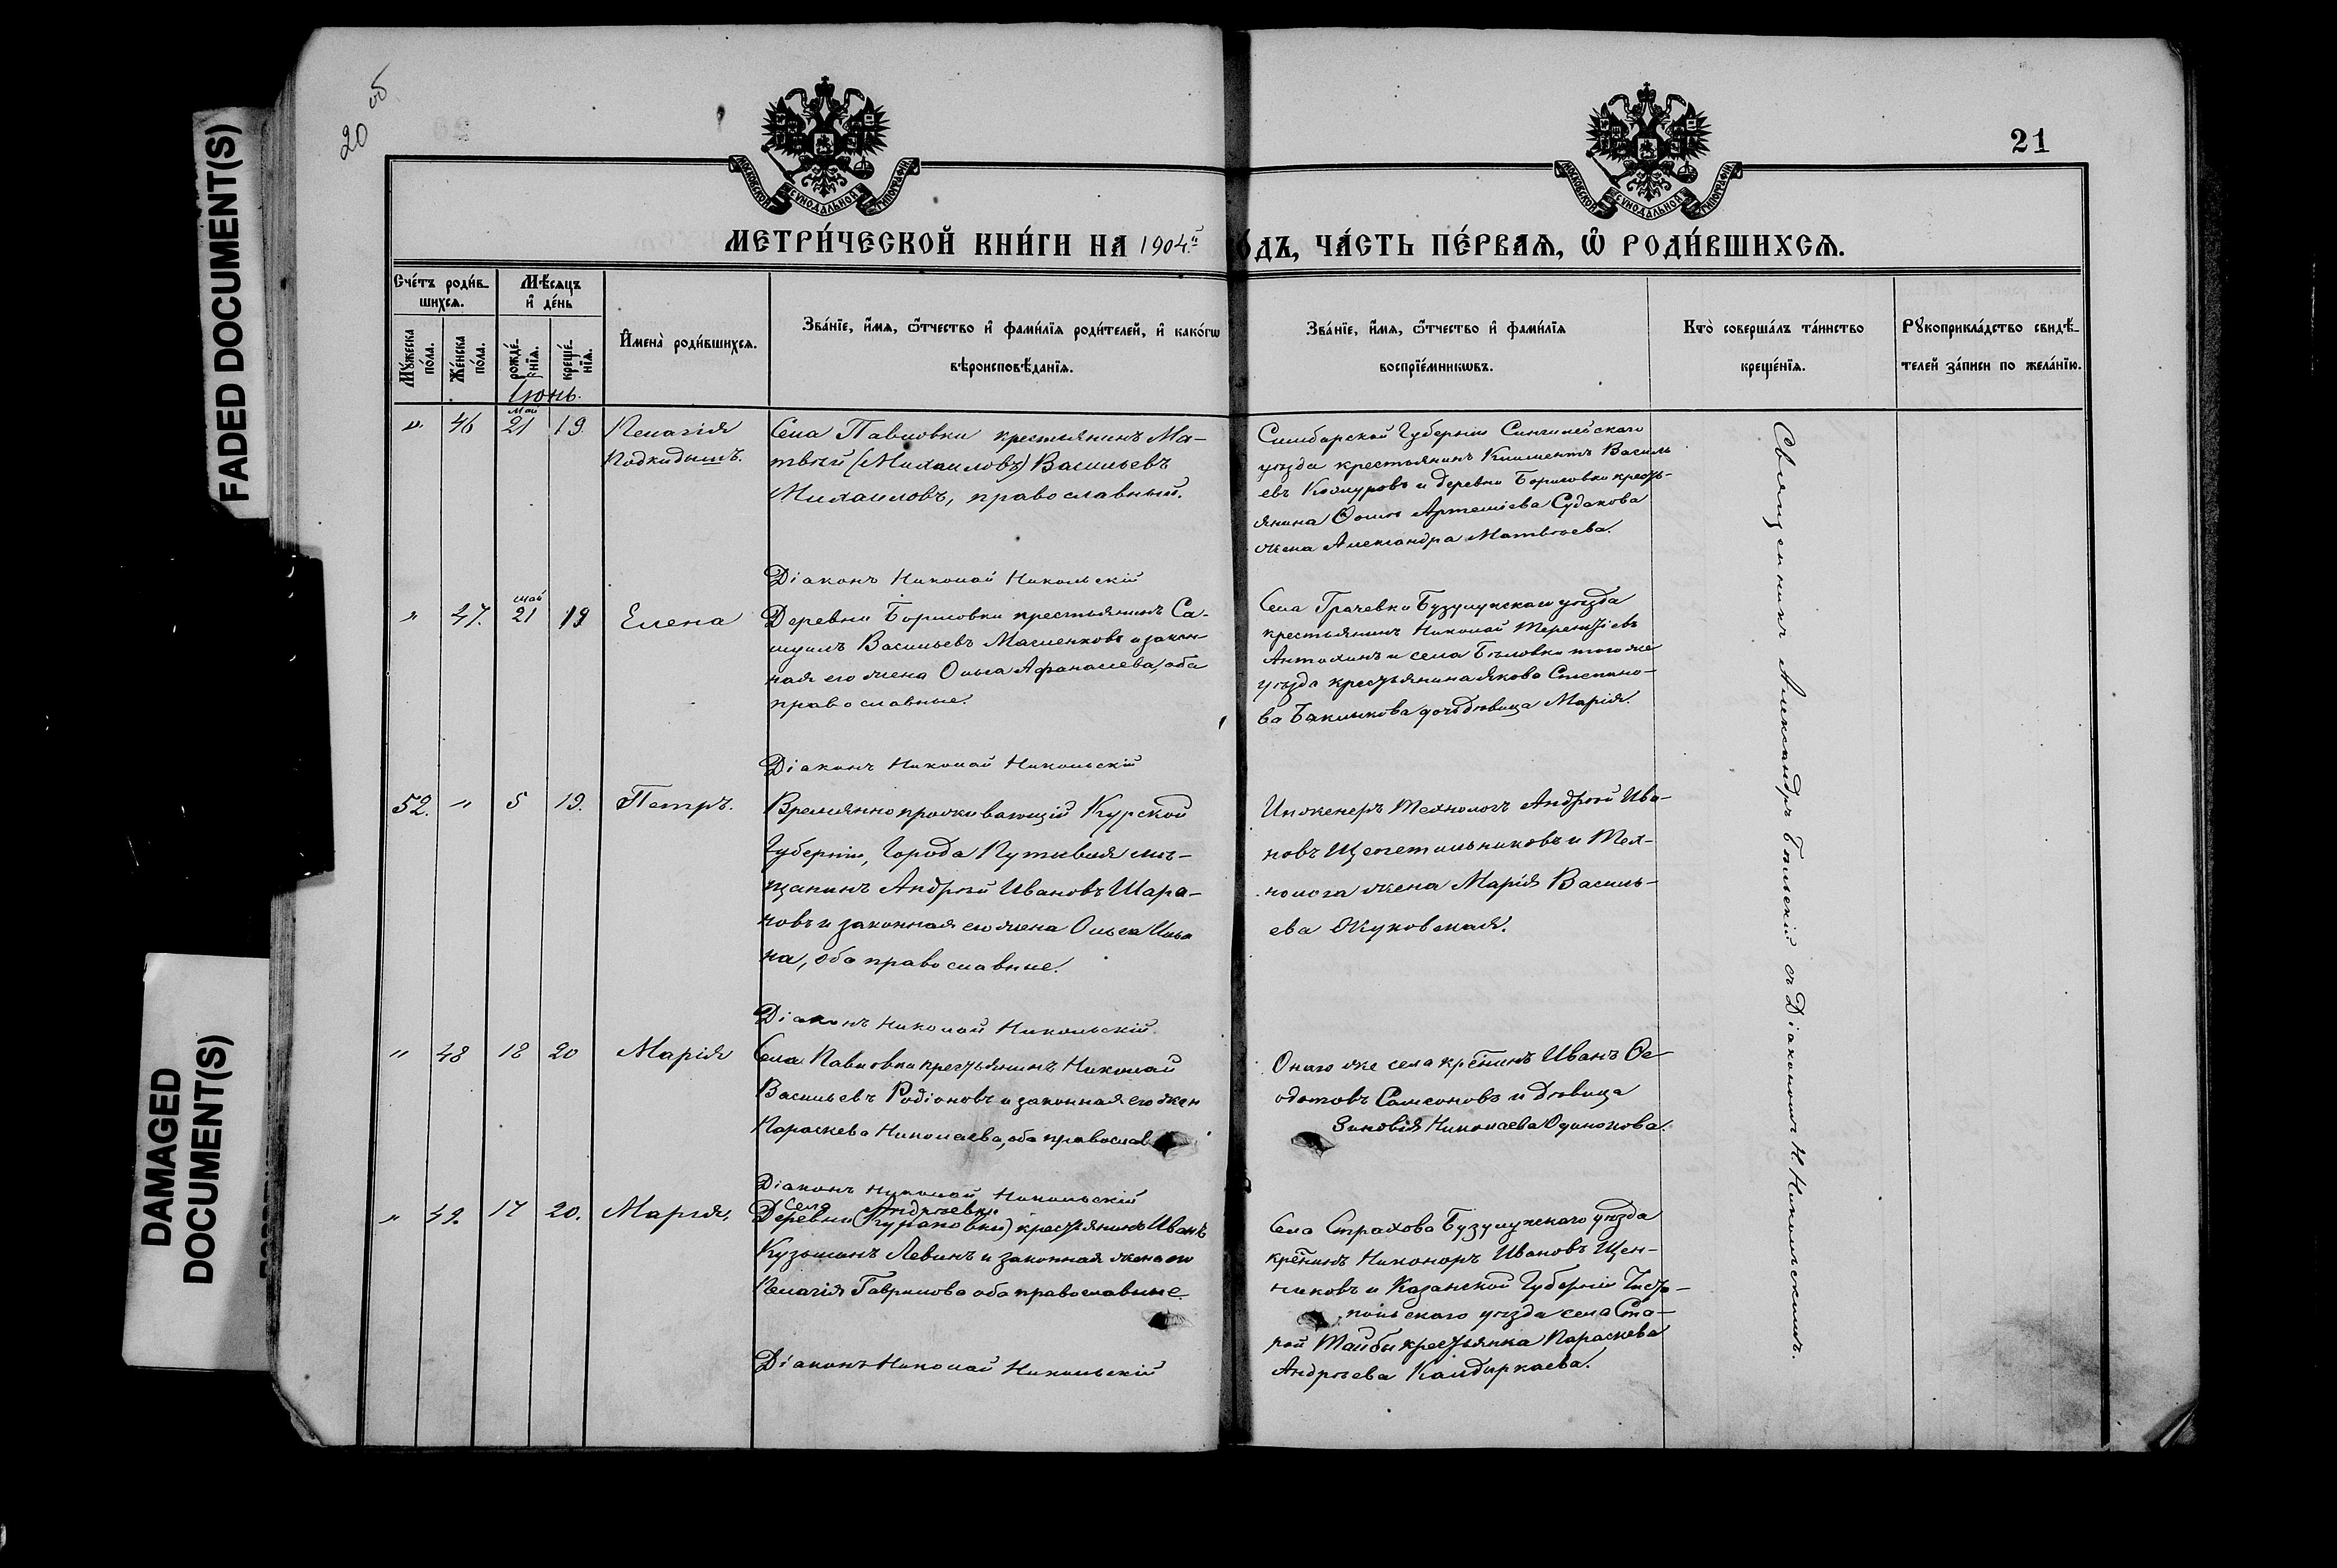 20 об
21
FADED DOCUMENT(S)
DAMAGED
DOCUMENT(S)
МОСКОВСКОЙ СѴНОДАЛЬНОЙ ТИПОГРАФІИ
МОСКОВСКОЙ СѴНОДАЛЬНОЙ ТИПОГРАФІИ
МЕТРИ́ЧЕСКОЙ КНИ́ГИ НА 1904й
О́ДЪ, ЧА́СТЬ ПЕ́РВАѦ, Ѡ҆ РОДИ́ВШИХСѦ.
Сче́тъ роди́в-
шихсѧ.
Мѣ́сяцъ
и҆ де́нь
Мꙋ́жеска
по́ла.
Же́нска
по́ла.
рожде́-
нїѧ.
креще́-
нїѧ.
И҆мена̀ роди́вшихсѧ.
Зва́нїе, и҆́мѧ, ѻ҆́тчество и҆ фами́лїѧ роди́телей, и҆ како́гѡ
вѣроисповѣ́данїѧ.
Зва́нїе, и҆́мѧ, ѻ҆́тчество и҆ фами́лїѧ
воспрїе́мникѡвъ.
Кто̀ соверша́лъ та́инство
креще́нїѧ.
Рꙋкоприкла́дство свидѣ́-
телей за́писи по жела́нїю.
Іюнь.
" 46 Май 21 19 Пелагія
Подкидышъ.
Села Павловки крестьянинъ Ма-
твѣй (Михаиловъ) Васильевъ
Михаиловъ, православный.
Діаконъ Николай Никольскій
Симбирской Губерніи Сингилейскаго
уѣзда крестьянинъ Климентъ Василь
евъ и деревни Борисовки крест-
янина Ѳомы Артеміева Судакова
жена Александра Матвѣева.
" 47. май 21 19 Елена
Деревни Борисовки крестьянинъ Са-
муилъ Васильевъ Масленковъ и закон-
ная его жена Ольга Афанасіева, оба
православные.
Діаконъ Николай Никольскій
Села Грачевки Бузулукскаго уѣзда
крестьянинъ Николай Терентіевъ
Антохинъ и села Бѣловки того же
уѣзда крестьянина Якова Степано-
ва дочь дѣвица Марія.
52. " 5 19. Петръ.
Временно проживающій Курской
Губерніи, Города Путивля мѣ-
щанинъ Андрей Ивановъ Шара-
повъ и законная его жена Ольга Ильи
на, оба православные.
Діаконъ Николай Никольскій
Инженеръ Технологъ Андрей Ива-
новъ Щепетильниковъ и Тех-
нолога жена Марія Василь-
ева Жуковская.
" 48 18 20 Марія
Села Павловки крестьянинъ Николай
Васильевъ Родіоновъ и законная его жен
Параскева Николаева, оба православ
Діаконъ Николай Никольскій
Онаго же села крѣнинъ Иванъ Ѳе-
одотовъ Самсоновъ и дѣвица
Зиновія Николаева Одинокова.
" 49. 17 20. Марія,
Села Андреевки
Деревни (Кургановки) крестьянинъ Иванъ
Кузьминъ Левинъ и законная жена его
Пелагія Гаврилова оба православные.
Діаконъ Николай Никольскій
Села Страхова Бузулукскаго уѣзда
крѣнинъ Никоноръ Ивановъ Щен-
никовъ и Казанской Губерніи Чисто-
польскаго уѣзда села Ста-
рой Майны крестьянка Параскева
Андреева
Священникъ Александръ Бѣльскій съ Діакономъ Н. Никольскимъ.